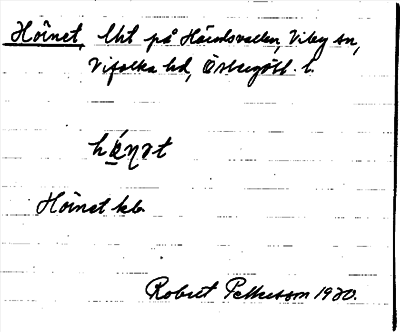 Höinet, Uht på Häradsvallen, Viby sn,
Vifolka hd, Östergötl. l.
Höinet kb.
Robert Pettersson 1920.